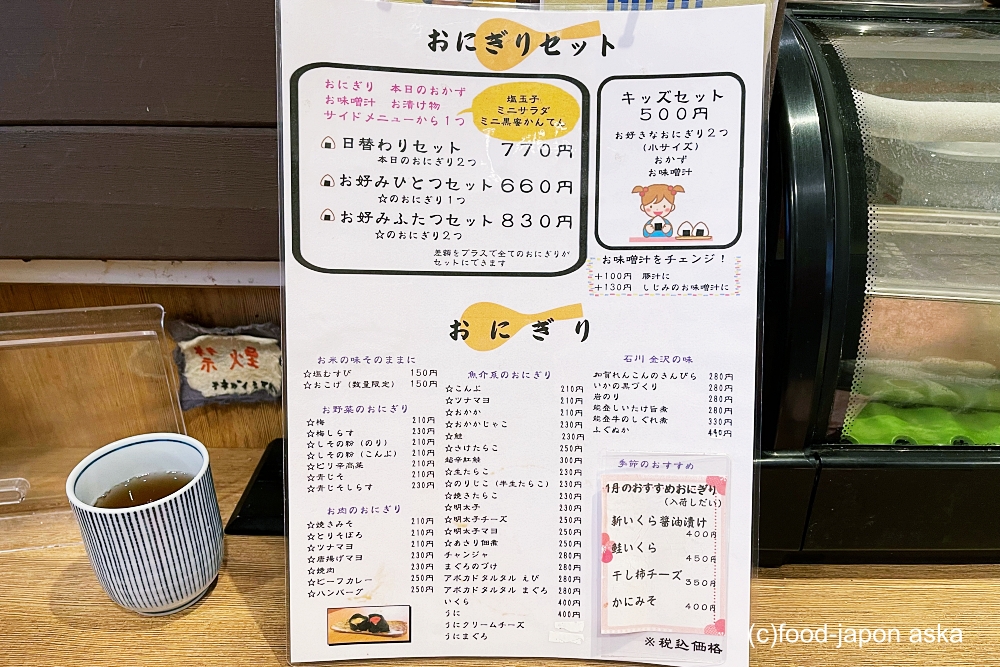 おにぎりセット
おにぎり 本日のおかず
お味噌汁 お漬け物
サイドメニューから1つ
塩玉子
ミニサラダ
ミニ黒蜜かんてん
日替わりセット 770円
本日のおにぎり2つ
お好みひとつセット 660円
☆のおにぎり1つ
お好みふたつセット 830円
☆のおにぎり2つ
差額をプラスで全てのおにぎりが
セットにできます
キッズセット
500円
お好きなおにぎり2つ
(小サイズ)
おかず
お味噌汁
お味噌汁をチェンジ!
+100円 豚汁に
+130円 しじみのお味噌汁に
おにぎり
お米の味そのままに
☆塩むすび 150円
☆おこげ (数量限定) 150円
お野菜のおにぎり
☆梅 210円
☆梅しらす 230円
☆しその粉 (のり) 210円
☆しその粉 (こんぶ) 210円
☆ピリ辛高菜 210円
☆青じそ 210円
☆青じそしらす 230円
お肉のおにぎり
☆焼きみそ 210円
☆とりそぼろ 210円
☆ツナマヨ 210円
☆唐揚げマヨ 230円
☆焼肉 230円
☆ビーフカレー 250円
☆ハンバーグ 250円
魚介系のおにぎり
☆こんぶ 210円
☆ツナマヨ 210円
☆おかか 210円
☆おかかじゃこ 230円
☆鮭 230円
☆さけたらこ 250円
超辛紅鮭 300円
☆生たらこ 230円
☆のりじこ (半生たらこ) 230円
☆焼きたらこ 230円
☆明太子 230円
☆明太子チーズ 250円
☆明太子マヨ 250円
☆あさり佃煮 250円
チャンジャ 280円
まぐろのづけ 280円
アボカドタルタル えび 280円
アボカドタルタル まぐろ 280円
いくら 400円
うに 400円
うにクリームチーズ
うにまぐろ
石川 金沢の味
加賀れんこんのきんぴら 280円
いかの黒づくり 280円
岩のり 280円
能登しいたけ旨煮 280円
能登牛のしぐれ煮 330円
ふぐぬか 440円
季節のおすすめ
1月のおすすめおにぎり
(入荷しだい)
新いくら醤油漬け
400円
鮭いくら
450円
干し柿チーズ 350円
かにみそ 400円
※税込価格
禁煙
(c)food-japon aska